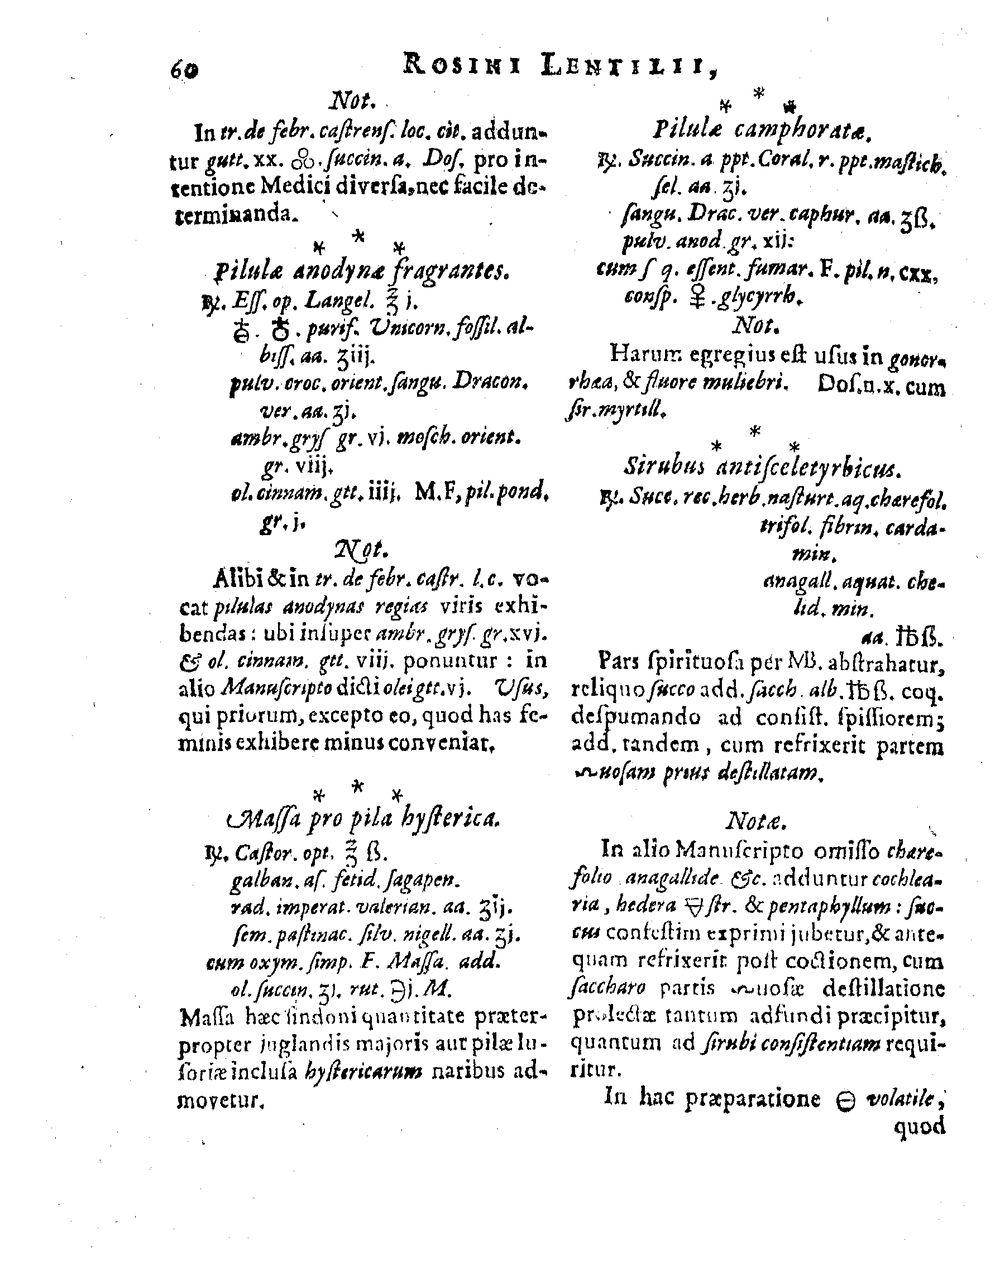 60
ROSINI LENTILII,
Not.
In tr. de febr. caſtrenſ. loc. cit. addun-
tur gutt. xx. succin. a. Doſ. pro in-
tentione Medici diverſa, nec facile de-
terminanda.
* * *
Pilulæ anodynæ fragrantes.
℞. Eſſ. op. Langel. ℥ j.
. . puriſ. Unicorn. foſſil. al-
biſſ. aa. ʒiij.
pulv. croc. orient. ſangu. Dracon.
ver. aa. ʒj.
ambr. gryſ gr. vj. moſch. orient.
gr. viij.
ol. cinnam. gtt. iiij. M. F. pil. pond.
gr. j.
Not.
Alibi & in tr. de febr. caſtr. l. c. vo-
cat pilulas anodynas regias viris exhi-
bendas: ubi inſuper ambr. gryſ. gr. xvj.
& ol. cinnam. gtt. viij. ponuntur: in
alio Manuſcripto dicti olei gtt. vj. Uſus,
qui priorum, excepto eo, quod has fe-
minis exhibere minus conveniat.
* * *
Maſſa pro pila hyſterica.
℞. Caſtor. opt. ℥ ß.
galban. aſ. fetid. ſagapen.
rad. imperat. valerian. aa. ʒij.
ſem. paſtinac. ſilv. nigell. aa. ʒj.
cum oxym. ſimp. F. Maſſa. add.
ol. ſuccin. ʒj. rut. ℈j. M.
Maſſa hæc ſindoni quantitate præter-
propter juglandis majoris aut pilæ lu-
ſoriæ incluſa hyſtericarum naribus ad-
movetur.
* * *
Pilulæ camphoratæ.
℞. Succin. a ppt. Coral. r. ppt. maſtich.
ſel. aa. ʒj.
ſangu. Drac. ver. caphur. aa. ʒß.
pulv. anod. gr. xij:
cum ſ q. eſſent. fumar. F. pil. n. cxx.
conſp. ♀. glycyrrh.
Not.
Harum egregius eſt uſus in gonor-
rhæa, & fluore muliebri. Doſ. n. x. cum
ſir. myrtill.
* * *
Sirubus antiſceletyrbicus.
℞. Succ. rec. herb. naſturt. aq. chærefol.
trifol. fibrin. carda-
min.
anagall. aquat. che-
lid. min.
aa. ℔ß.
Pars ſpirituoſa per MB. abſtrahatur,
reliquo ſucco add. ſacch. alb. ℔ß. coq.
deſpumando ad conſiſt. ſpiſſiorem;
add. tandem, cum refrixerit partem
uoſam prius deſtillatam.
Notæ.
In alio Manuſcripto omiſſo chære-
folio anagallide &c. adduntur cochlea-
ria, hedera 🜃ſtr. & pentaphyllum: ſuc-
cus confeſtim exprimi jubetur, & ante-
quam refrixerit poſt coctionem, cum
ſaccharo partis uoſæ deſtillatione
prolectæ tantum adfundi præcipitur,
quantum ad ſirubi conſiſtentiam requi-
ritur.
In hac præparatione 🜔 volatile,
quod